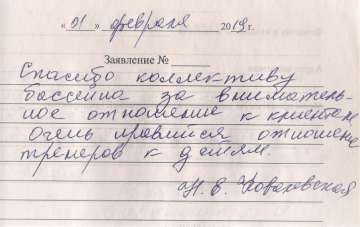 « 21 » февраля 2019 г.
Заявление №
Спасибо коллективу
бассейна за вниматель-
ное отношение к клиентам
Очень нравится отношение
тренеров к детям.
Н. В.